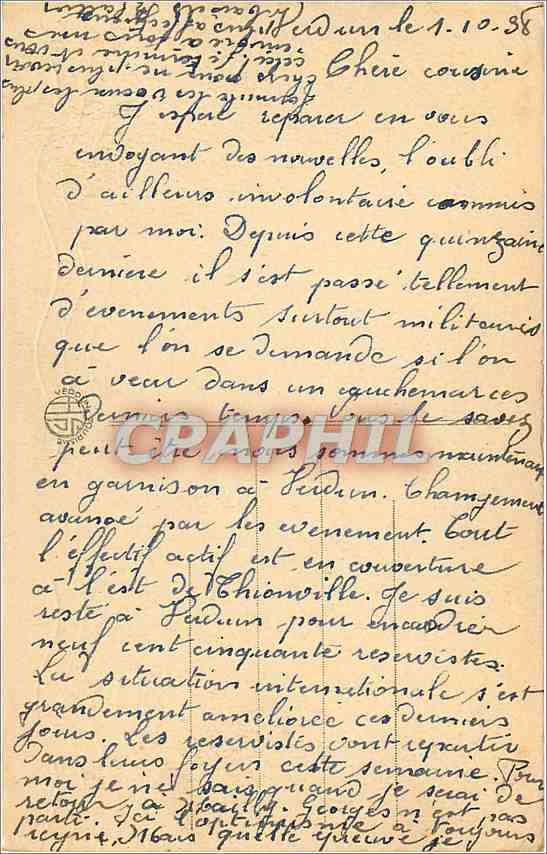 Verdun le 1.10.38
Chère cousine
J'espère réparer en vous
envoyant des nouvelles, l'oubli
d'ailleurs involontaire commis
par moi. Depuis cette quinzaine
dernière il s'est passé tellement
d'evenements surtout militaires
que l'on se demande si l'on
a vecu dans un cauchemar ces
derniers temps. vous le savez
peut être nous sommes maintenant
en garnison à Verdun. Changement
avancé par les evenement. Tout
l'éffectif actif est en couverture
à l'ést de Thionville. Je suis
resté à Verdun pour encadrer
neuf cent cinquante reservistes.
La situation internationale s'est
grandement ameliorée ces derniers
jours. Les reservistes vont repartir
dans leurs foyers cette semaine. Pour
moi je ne sais quand je serai de
retour à Georges n'est pas
parti. Ici l'optimisme a toujours
regné, Mais quelle épreuve je
CPARHIL